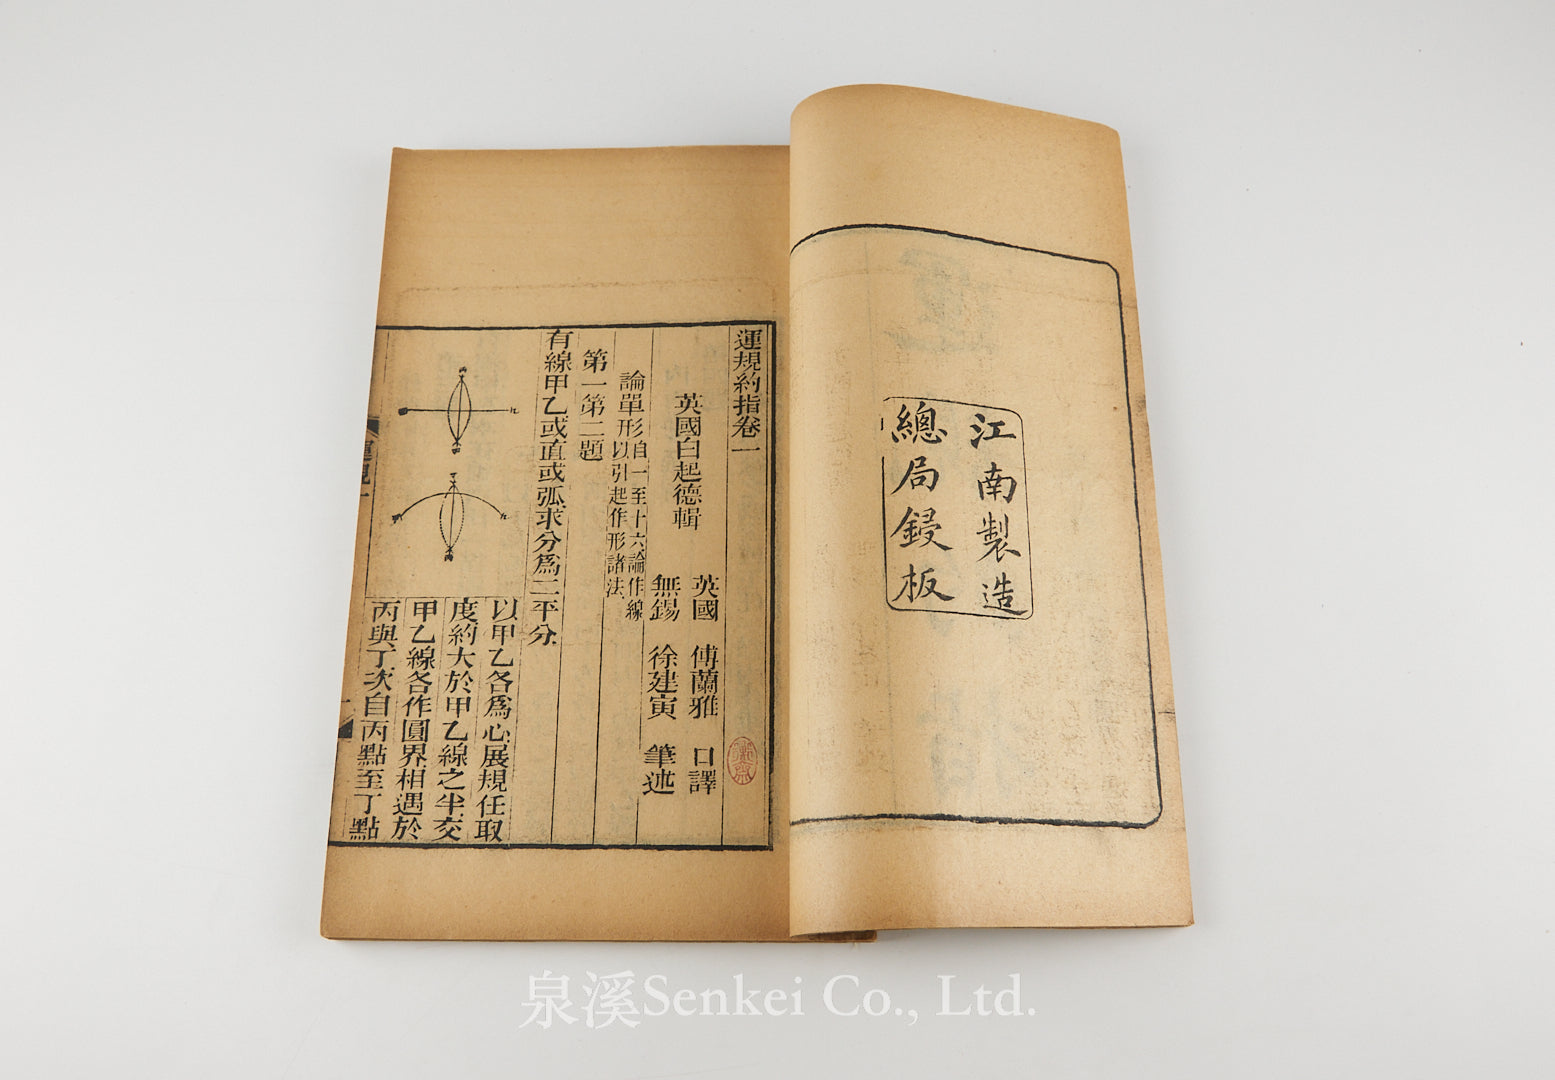 江南製造
總局鋟板
運規約指卷一
英國白起德輯
英國 傅蘭雅 口譯
無錫 徐建寅 筆述
論單形自一至十六論作線
以引起作形諸法
第一第二題
有線甲乙或直或弧求分爲二平分
以甲乙各爲心展規任取
度約大於甲乙線之半交
甲乙線各作圓界相遇於
丙與丁次自丙點至丁點
運規一
泉溪Senkei Co., Ltd.